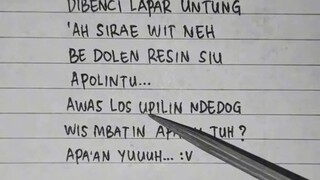 DIBENCI LAPAR UNTUNG
'AH SIRAE WIT NEH
BE DOLEN RESIN SIU
APOLINTU...
AWAS LOS UPILIN NDEDOG
WIS MBATIN TUH?
APA'AN YUUUH... :V